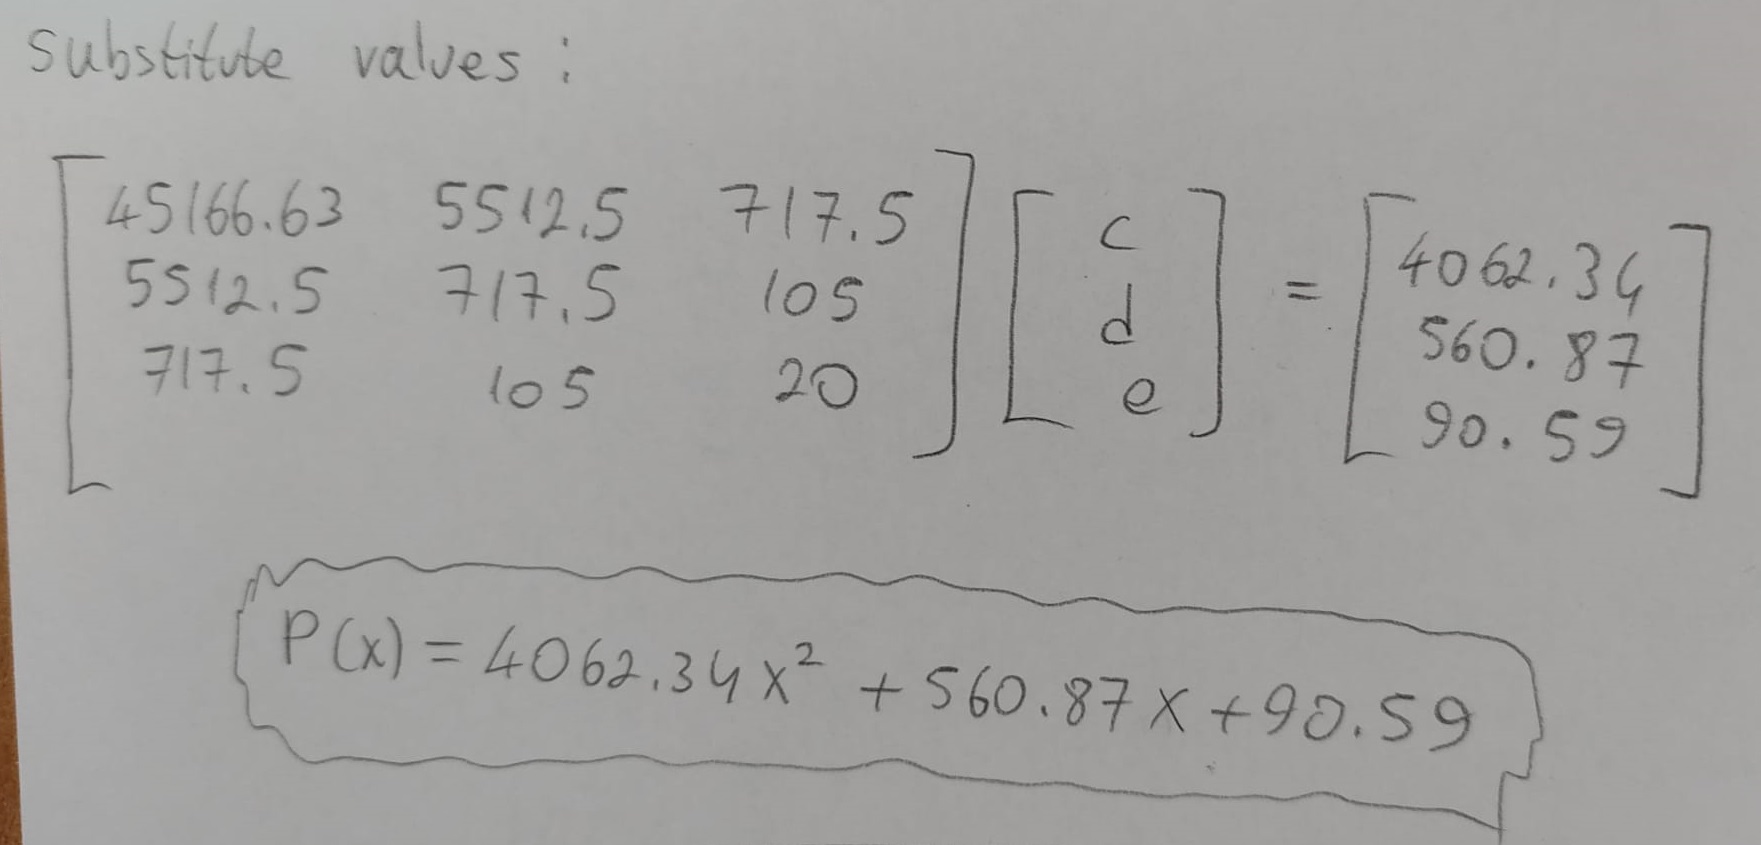 Substitute values:
45166.63 5512.5 717.5
5512.5 717.5 105
717.5 105 20
c
d
e
=
4062.34
560.87
90.59
P(x) = 4062.34x² + 560.87x + 90.59